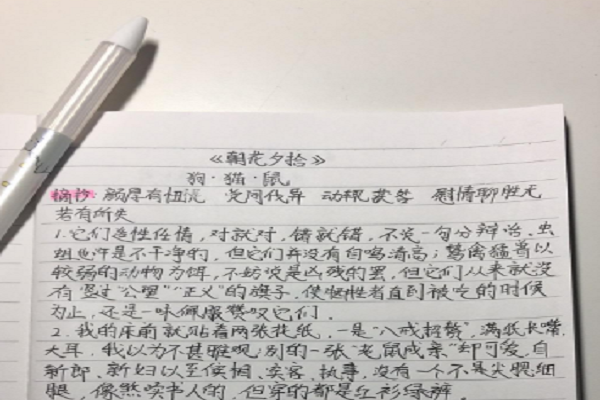 《朝花夕拾》
狗·猫·鼠
摘抄 颇是有忸怩 党同伐异 动辄获咎 慰情聊胜无
若有所失
1.它们适性任情,对就对,错就错,不说一句分辩话。虫
蛆也许是不干净的,但它们并没有自鸣清高;鸷禽猛兽以
较弱的动物为饵,不妨说是凶残的罢,但它们从来就没
有竖过"公理""正义"的旗子,使牺牲者直到被吃的时候
为止,还是一味佩服赞叹它们。
2.我的床前就贴着两张花纸,一是"八戒招赘",满纸长嘴
大耳,我以为不甚雅观;别的一张"老鼠成亲"却可爱,自
新郎、新妇以至傧相、宾客、执事,没有一个不是尖腮细
腿,像煞读书人的,但穿的都是红衫绿裤。